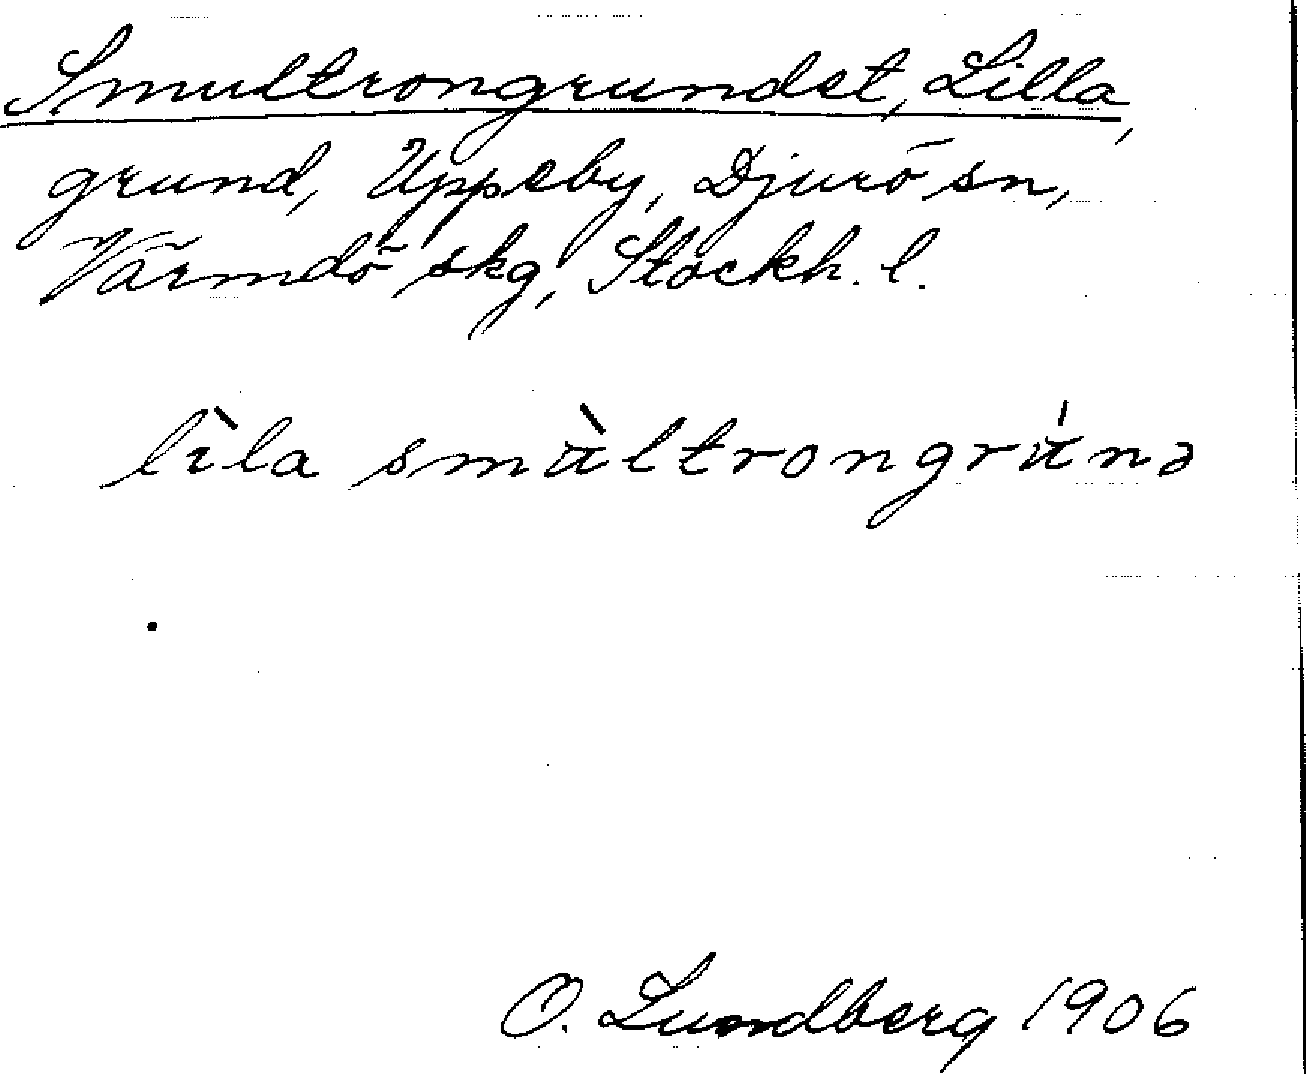 Smultrongrundet, Lilla,
grund, Uppeby, Djurö sn,
Värmdö skg, Stockh. l.
lìla smùltrongrúnə
O. Lundberg 1906